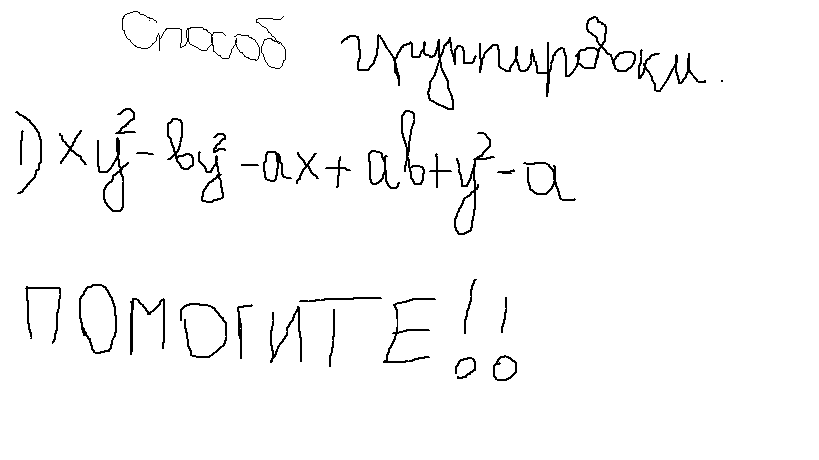 Способ группировки.
1) xy² - by² - ax + ab + y² - a
ПОМОГИТЕ!!